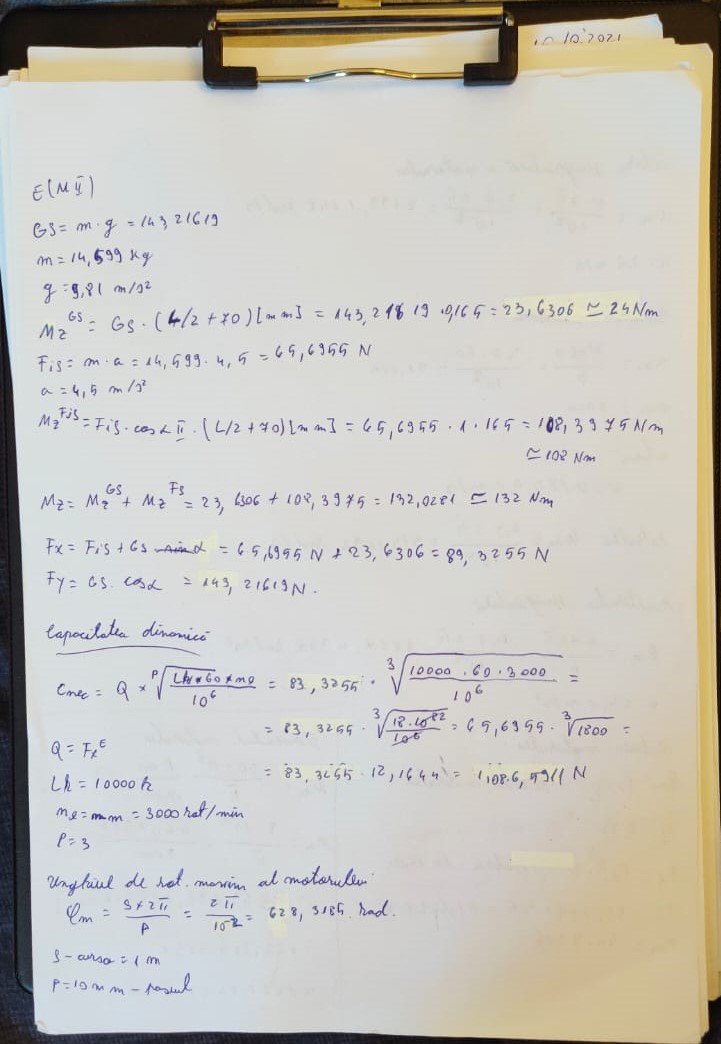 10.10.2021
E(M II)
GS = m·g = 143,21619
m = 14,599 kg
g = 9,81 m/s²
Mz^GS = GS · (L/2 + 70)[mm] = 143,21619 · 0,165 = 23,6306 ≃ 24 Nm
Fis = m·a = 14,599 · 4,5 = 65,6955 N
a = 4,5 m/s²
Mz^Fis = Fis · cos α II · (L/2 + 70)[mm] = 65,6955 · 1 · 165 = 108,3975 Nm
≃ 108 Nm
Mz = Mz^GS + Mz^Fs = 23,6306 + 108,3975 = 132,0281 ≃ 132 Nm
Fx = Fis + Gs sin α = 65,6955 N + 23,6306 = 89,3255 N
Fy = GS · cos α = 143,21619 N.
Capacitatea dinamică
Cnec = Q × ᵖ√(Lh×60×me / 10⁶) = 83,3255 · ³√(10000 · 60 · 3000 / 10⁶) =
= 83,3255 · ³√(18·10⁸ / 10⁶) = 65,6955 · ³√1800 =
Q = Fx^E
= 83,3255 · 12,1644 = 1,108.6,5911 N
Lh = 10000 h
me = mm = 3000 rot/min
P = 3
Unghiul de rot. maxim al motorului
φm = S×2π / P = 2π / 10⁻² = 628,3185 rad.
S - cursa = 1 m
P = 10 mm - pasul